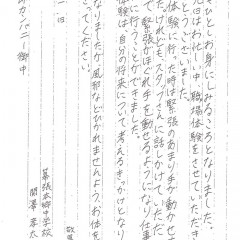 とお身にしみるころとなりました。
先日はお仕事中、職場体験をさせていただき
とうございました。
体験に行った時は緊張のあまり手が動かせ
た。けれども、スタッフさんに話しかけていただ
で緊張がほぐれ手を動かせるようになり仕事
に行うことができました。
体験は自分の将来について考えるきっかけとなり
なりましたが風邪などひかれませんよう、お体を
ってください。
敬
二日
幕張本郷中学校
カンパニー 御中